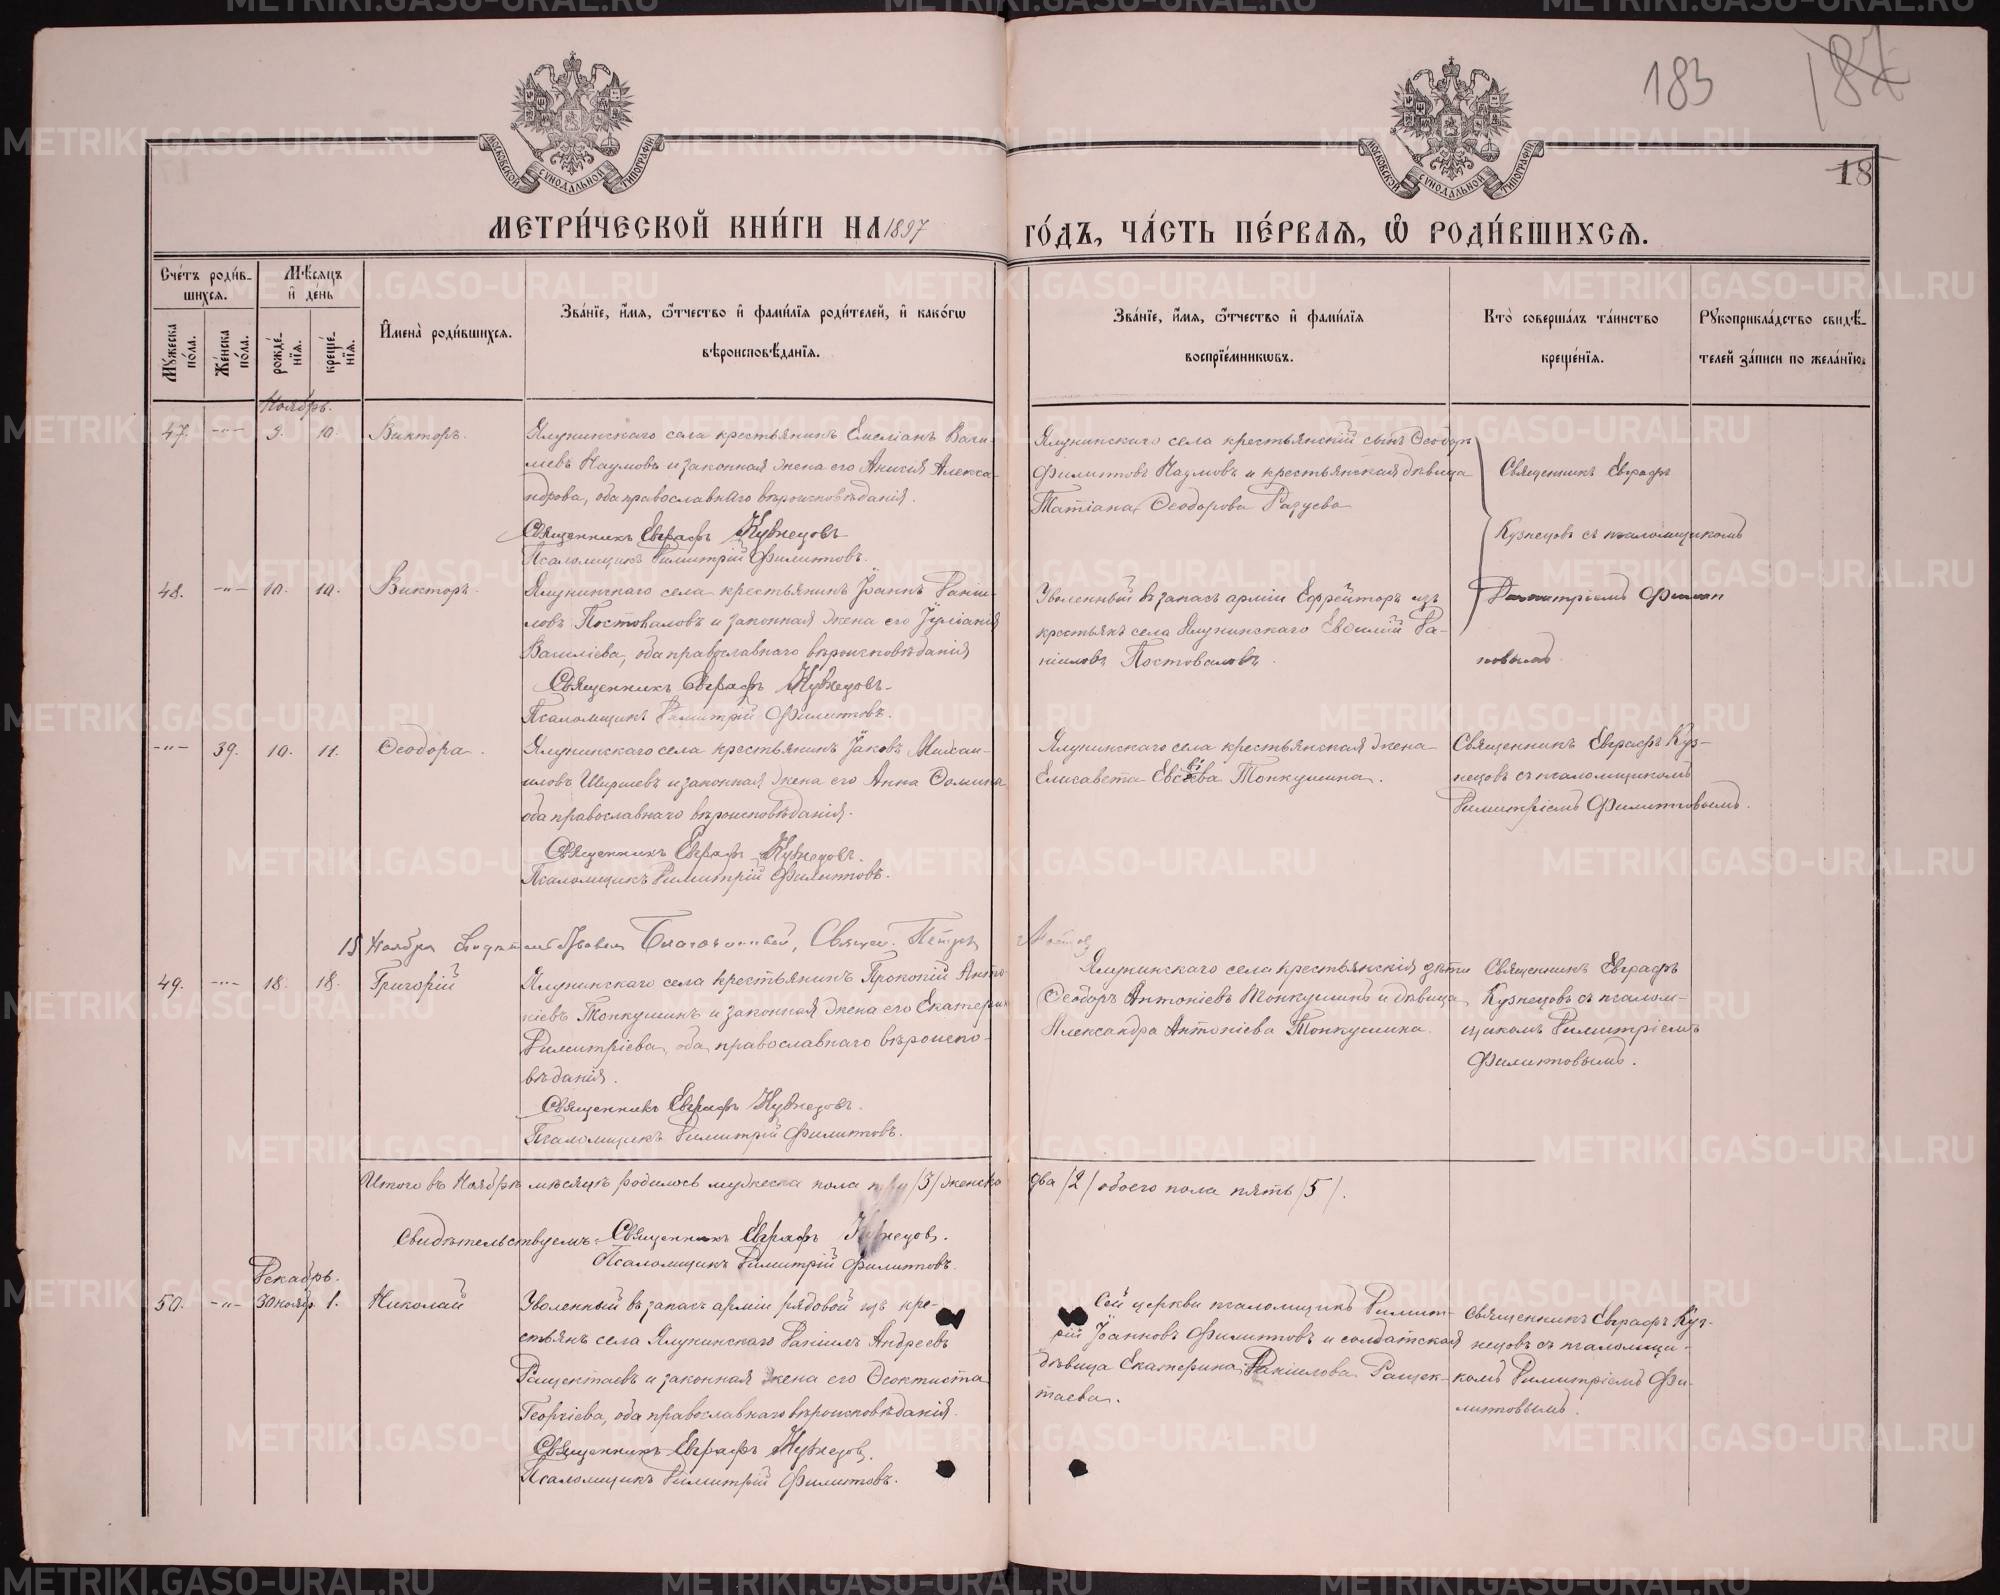 183
187
18
МОСКОВСКОЙ СУНОДАЛЬНОЙ ТИПОГРАФІИ
МОСКОВСКОЙ СУНОДАЛЬНОЙ ТИПОГРАФІИ
МЕТРИ́ЧЕСКОЙ КНИ́ГИ НА 1897 ГО́ДЪ, ЧА́СТЬ ПЕ́РВАѦ, Ѡ РОДИ́ВШИХСѦ.
Сче́тъ роди́в-
шихсѧ.
Мꙋ́жеска по́ла.
Же́нска по́ла.
Мѣ́сѧцъ
и҆ де́нь
рожде́-
нїѧ.
креще́-
нїѧ.
И҆мена̀ роди́вшихсѧ.
Зва́нїе, и҆́мѧ, ѻ҆́тчество и҆ фами́лїѧ роди́телей, и҆ како́гѡ
вѣроисповѣ́данїѧ.
Зва́нїе, и҆́мѧ, ѻ҆́тчество и҆ фами́лїѧ
воспрїе́мникѡвъ.
Кто̀ соверша́лъ та́инство
креще́нїѧ.
Рꙋкоприкла́дство свидѣ́-
телей за́писи по жела́нїю.
Ноябрь.
47. -"- 9. 10. Викторъ.
Ялунинскаго села крестьянинъ Емеліанъ Васи-
льевъ Наумовъ и законная жена его Анисія Алекса-
ндрова, оба православнаго вѣроисповѣданія.
Священникъ Евграфъ Кузнецовъ
Псаломщикъ Димитрій Филитовъ.
Ялунинскаго села крестьянскій сынъ Ѳеодоръ
Филитовъ Наумовъ и крестьянская дѣвица
Татіана Ѳеодорова
Священникъ Евграфъ
Кузнецовъ съ псаломщикомъ
Димитріемъ
48. -"- 10. 10. Викторъ.
Ялунинскаго села крестьянинъ Іоаннъ Даніи-
ловъ Постоваловъ и законная жена его Іуліанія
Василіева, оба православнаго вѣроисповѣданія
Священникъ Евграфъ Кузнецовъ.
Псаломщикъ Димитрій Филитовъ.
Уволенный въ запасъ арміи Ефрейторъ изъ
крестьянъ села Ялунинскаго Да-
ніиловъ Постоваловъ.
-"- 39. 10. 11. Ѳеодора.
Ялунинскаго села крестьянинъ Іаковъ Михаи-
ловъ и законная жена его Анна
оба православнаго вѣроисповѣданія.
Священникъ Евграфъ Кузнецовъ.
Псаломщикъ Димитрій Филитовъ.
Ялунинскаго села крестьянская жена
Елисавета Топкушина.
Священникъ Евграфъ Куз-
нецовъ съ псаломщикомъ
Димитріемъ Филитовымъ.
15 Ноября Благочинный, Священ. Петръ
49. -"- 18. 18. Григорій
Ялунинскаго села крестьянинъ Прокопій Анто-
ніевъ Топкушинъ и законная жена его Екатерина
Димитріева, оба православнаго вѣроиспо-
вѣданія.
Священникъ Евграфъ Кузнецовъ.
Псаломщикъ Димитрій Филитовъ.
Ялунинскаго села крестьянскія дѣти
Ѳеодоръ Антоніевъ Топкушинъ и дѣвица
Александра Антоніева Топкушина.
Священникъ Евграфъ
Кузнецовъ съ псалом-
щикомъ Димитріемъ
Филитовымъ.
Итого въ Ноябрѣ мѣсяцѣ родилось мужеска пола три /3/ женска два /2/ обоего пола пять /5/.
Свидѣтельствуемъ: Священникъ Евграфъ Кузнецовъ.
Псаломщикъ Димитрій Филитовъ.
Декабрь.
50. -"- 30 нояб. 1. Николай
Уволенный въ запасъ арміи рядовой изъ кре-
стьянъ села Ялунинскаго Даніилъ Андреевъ
Ращектаевъ и законная жена его Ѳеоктиста
Георгіева, оба православнаго вѣроисповѣданія.
Священникъ Евграфъ Кузнецовъ.
Псаломщикъ Димитрій Филитовъ.
Сей церкви псаломщикъ Димит-
рій Іоанновъ Филитовъ и солдатская
дѣвица Екатерина Даніилова Ращек-
таева.
Священникъ Евграфъ Куз-
нецовъ съ псаломщи-
комъ Димитріемъ Фи-
литовымъ.
METRIKI.GASO-URAL.RU